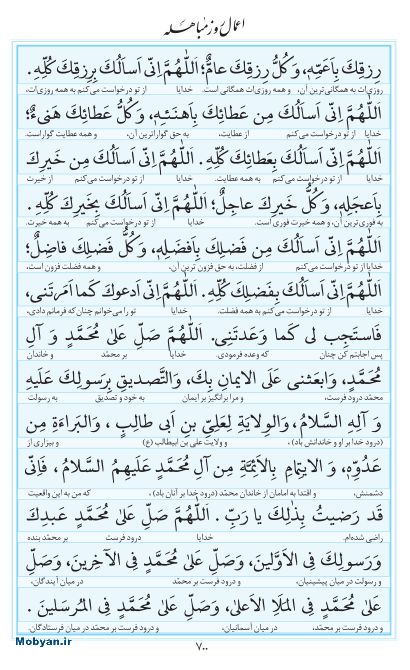 اعمال روز مباهله
رِزقِكَ بِاَعَمِّهِ، وَكُلُّ رِزقِكَ عامٌّ؛ اَللّٰهُمَّ اِنّى اَسأَلُكَ بِرِزقِكَ كُلِّهِ.
روزی‌ات به همگانی‌ترین آن، و همه روزی‌ات همگانی است. خدایا از تو درخواست می‌کنم به همه روزی‌ات،
اَللّٰهُمَّ اِنّى اَسأَلُكَ مِن عَطائِكَ بِاَهنَئِهِ، وَكُلُّ عَطائِكَ هَنىءٌ؛
خدایا از تو درخواست می‌کنم از عطایت، به حق گواراترین آن، و همه عطایت گواراست.
اَللّٰهُمَّ اِنّى اَسأَلُكَ بِعَطائِكَ كُلِّهِ. اَللّٰهُمَّ اِنّى اَسأَلُكَ مِن خَيرِكَ
خدایا از تو درخواست می‌کنم به همه عطایت. خدایا از تو درخواست می‌کنم از خیرت
بِاَعجَلِهِ، وَكُلُّ خَيرِكَ عاجِلٌ؛ اَللّٰهُمَّ اِنّى اَسأَلُكَ بِخَيرِكَ كُلِّهِ.
به فوری‌ترین آن، و همه خیرت فوری است. خدایا از تو درخواست می‌کنم به همه خیرت.
اَللّٰهُمَّ اِنّى اَسأَلُكَ مِن فَضلِكَ بِاَفضَلِهِ، وَكُلُّ فَضلِكَ فاضِلٌ؛
خدایا از تو درخواست می‌کنم از فضلت، به حق فزون ترین آن، و همه فضلت فزون است،
اَللّٰهُمَّ اِنّى اَسأَلُكَ بِفَضلِكَ كُلِّهِ. اَللّٰهُمَّ اِنّى اَدعوكَ كَما اَمَرتَنى،
خدایا از تو درخواست می‌کنم به همه فضلت. خدایا تو را می‌خوانم چنان که فرمانم دادی،
فَاستَجِب لى كَما وَعَدتَنى. اَللّٰهُمَّ صَلِّ عَلىٰ مُحَمَّدٍ وَ آلِ
پس اجابتم کن چنان که وعده فرمودی. خدایا درود فرست بر محمّد و خاندان
مُحَمَّدٍ، وَابعَثنى عَلَى الايمانِ بِكَ، وَالتَّصديقِ بِرَسولِكَ عَلَيهِ
محمّد درود فرست، و مرا برانگیز بر ایمان به خود و تصدیق به رسولت
وَ آلِهِ السَّلامُ، وَالوِلايَةِ لِعَلِىِّ بنِ اَبى طالِبٍ، وَالبَراءَةِ مِن
(درود خدا بر او و خاندانش باد)، و ولایت علی بن ابیطالب (ع) و بیزاری از
عَدُوِّهِ، وَ الايتِمامِ بِالاَئِمَّةِ مِن آلِ مُحَمَّدٍ عَلَيهِمُ السَّلامُ، فَاِنّى
دشمنش، و اقتدا به امامان از خاندان محمّد (درود خدا بر آنان باد)، که من به این واقعیت
قَد رَضيتُ بِذٰلِكَ يا رَبِّ. اَللّٰهُمَّ صَلِّ عَلىٰ مُحَمَّدٍ عَبدِكَ
راضی شده‌ام. خدایا درود فرست بر محمّد بنده
وَرَسولِكَ فِى الاَوَّلينَ، وَصَلِّ عَلىٰ مُحَمَّدٍ فِى الآخِرينَ، وَصَلِّ
و رسولت در میان پیشینیان، و درود فرست بر محمّد در میان آیندگان،
عَلىٰ مُحَمَّدٍ فِى المَلَأِ الاَعلىٰ، وَصَلِّ عَلىٰ مُحَمَّدٍ فِى المُرسَلينَ.
و درود فرست بر محمّد، در میان آسمانیان، و درود فرست بر محمّد در میان فرستادگان.
۷۰۰
Mobyan.ir